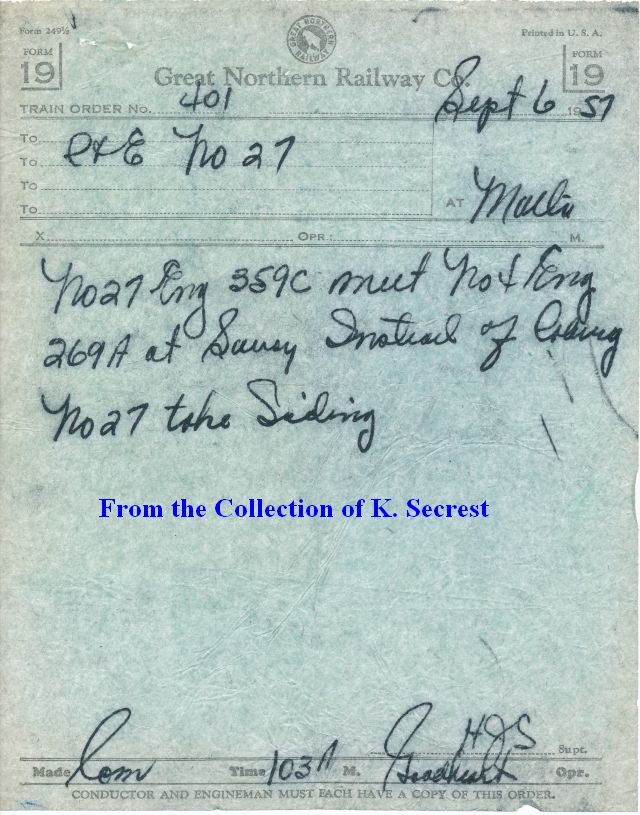 Form 249½
Printed in U. S. A.
FORM
19
GREAT NORTHERN RAILWAY
FORM
19
Great Northern Railway Co.
TRAIN ORDER No. 401
Sept 6 1957
To
To C&E No 27
To
To
AT Malta
X OPR: M.
No 27 Eng 359C meet No 4 Eng
269A at Savoy Instead of Coburg
No 27 take Siding
From the Collection of K. Secrest
HJS Supt.
Made Com Time 103A M. Opr.
CONDUCTOR AND ENGINEMAN MUST EACH HAVE A COPY OF THIS ORDER.